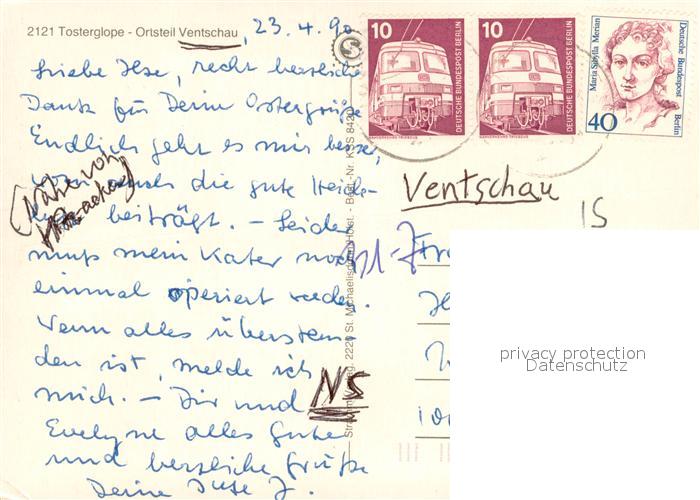 2121 Tosterglope - Ortsteil Ventschau, 23.4.90
Liebe Ilse, recht herzliche
Dank für Deine Ostergrüße
Endlich geht es mir besser,
wozu auch die gute Heide
beiträgt. – Leider
muß mein Kater noch
einmal operiert werden.
Wenn alles überstan
den ist, melde ich
mich. – Dir und
Evelyne alles Gute
und herzliche Grüße
Deine
(Nähe von
NS
10
DEUTSCHE BUNDESPOST BERLIN
10
DEUTSCHE BUNDESPOST BERLIN
Maria Sibylla Merian
Deutsche Bundespost
Berlin
40
Ventschau
IS
privacy protection
Datenschutz
2220 St. Michaelisdonn/Holst. - Best.-Nr. KSS 842